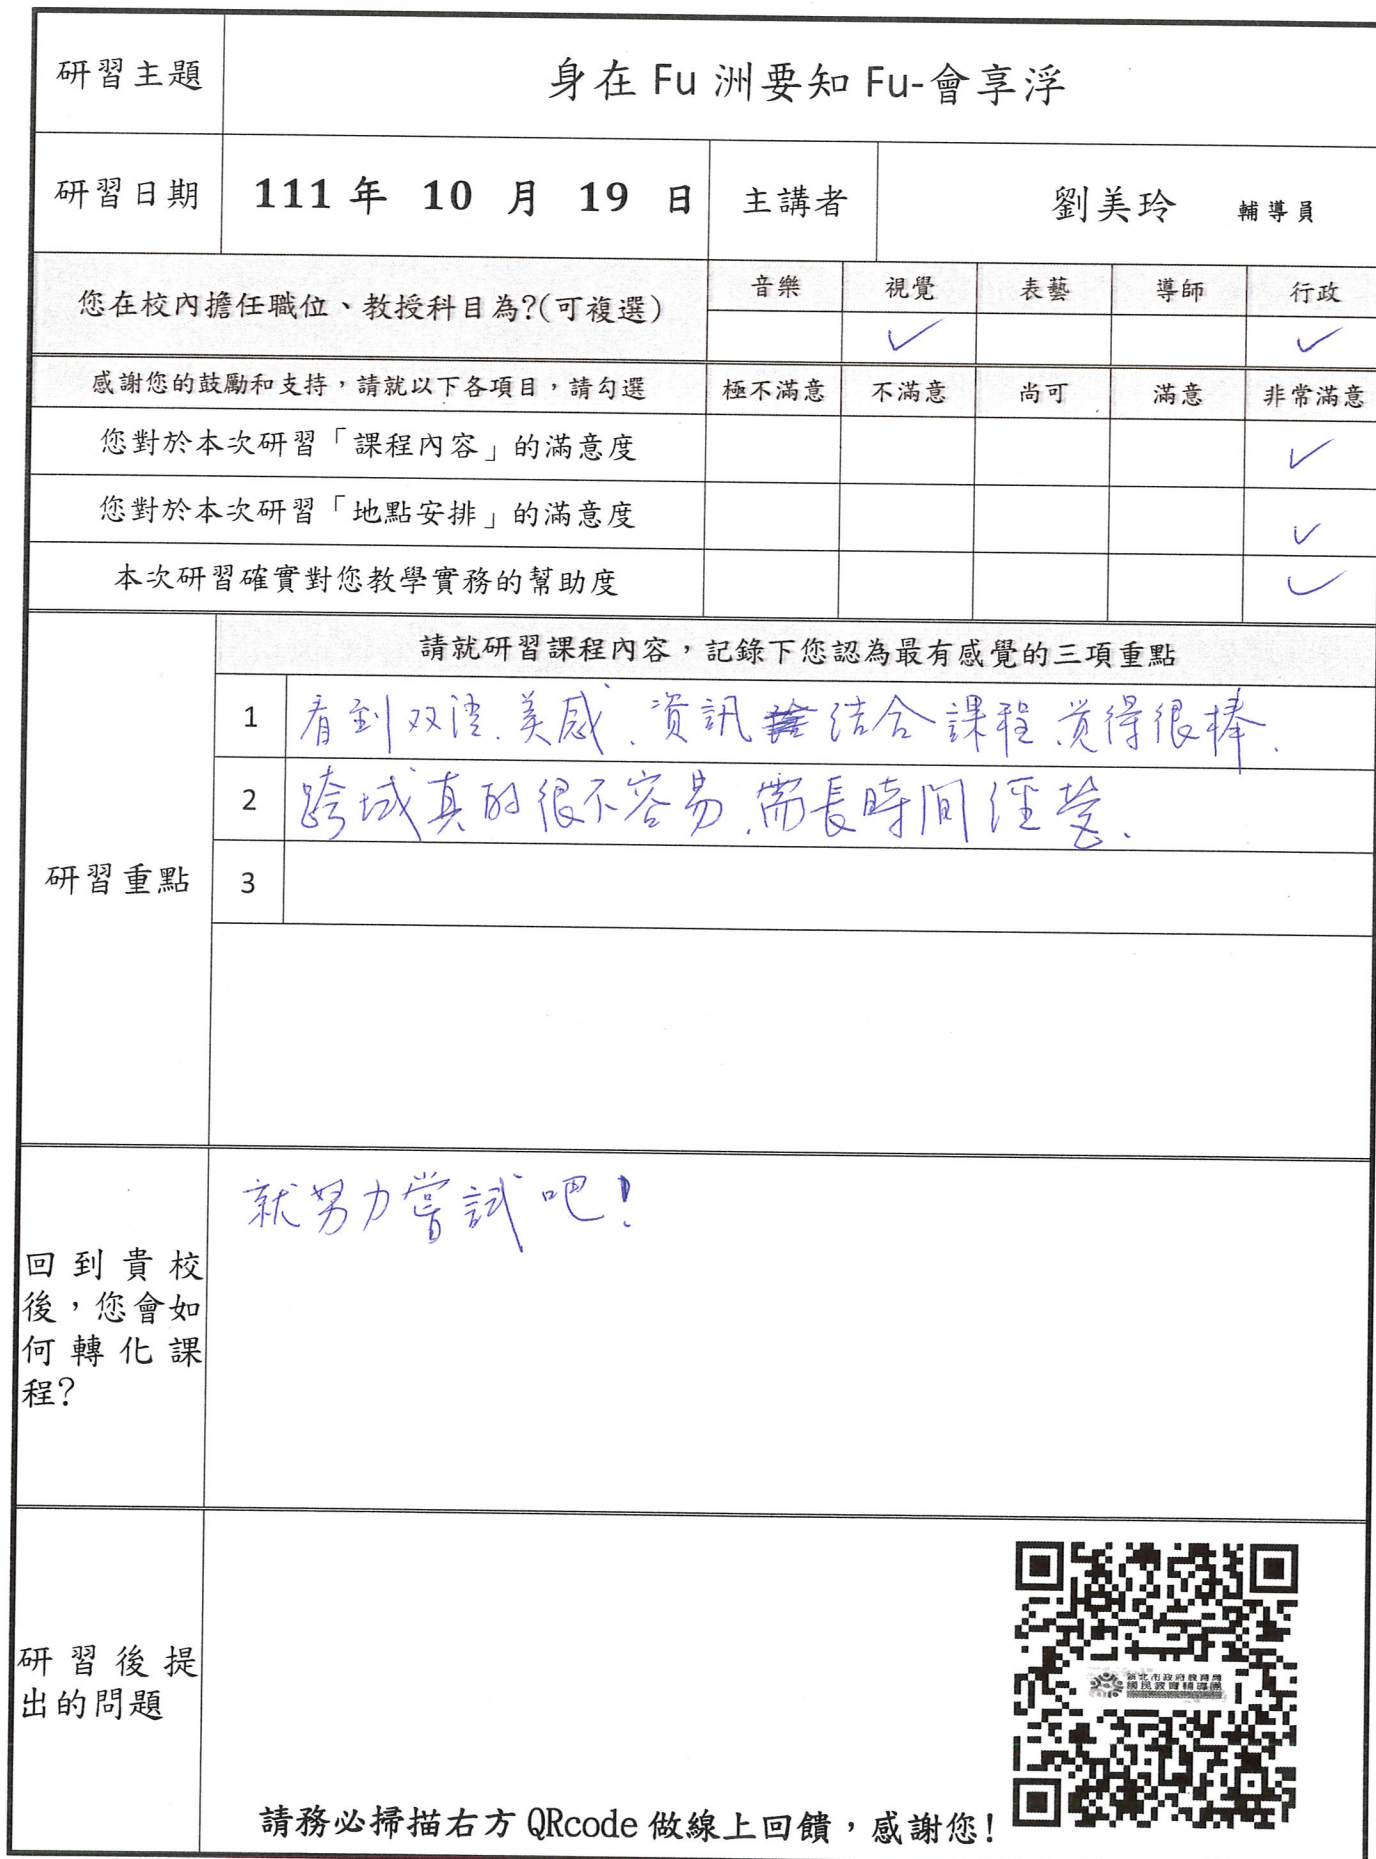 研習主題 身在 Fu 洲要知 Fu-會享浮
研習日期 111 年 10 月 19 日 主講者 劉美玲 輔導員
您在校內擔任職位、教授科目為?(可複選) 音樂 視覺 表藝 導師 行政
✓ ✓
感謝您的鼓勵和支持，請就以下各項目，請勾選 極不滿意 不滿意 尚可 滿意 非常滿意
您對於本次研習「課程內容」的滿意度 ✓
您對於本次研習「地點安排」的滿意度 ✓
本次研習確實對您教學實務的幫助度 ✓
研習重點
請就研習課程內容，記錄下您認為最有感覺的三項重點
1 看到双語、美感、資訊結合課程、覚得很棒、
2 跨域真的很不容易、需長時間經營、
3
回到貴校
後，您會如
何轉化課
程?
就努力嘗試吧!
研習後提
出的問題
新北市政府教育局
國民教育輔導團
請務必掃描右方 QRcode 做線上回饋，感謝您!